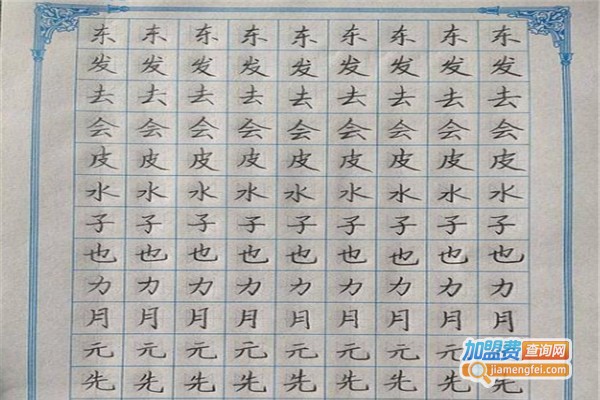 东东东东东东东东东
发发发发发发发发发
去去去去去去去去去
会会会会会会会会会
皮皮皮皮皮皮皮皮皮
水水水水水水水水水
子子子子子子子子子
也也也也也也也也也
力力力力力力力力力
月月月月月月月月月
元元元元元元元元
先先先先先先先先先
加盟费查询网
jiamengfei.com